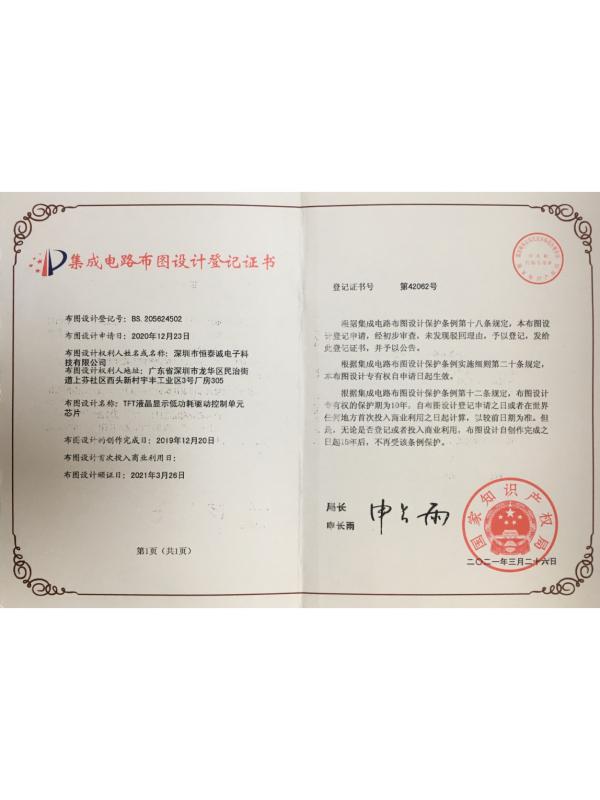 集成电路布图设计登记证书
布图设计登记号：BS.205624502
布图设计申请日：2020年12月23日
布图设计权利人姓名或名称：深圳市恒泰诚电子科
技有限公司
布图设计权利人地址：广东省深圳市龙华区民治街
道上芬社区西头新村宇丰工业区3号厂房305
布图设计名称：TFT液晶显示低功耗驱动控制单元
芯片
布图设计的创作完成日：2019年12月20日
布图设计首次投入商业利用日：
布图设计颁证日：2021年3月26日
第1页（共1页）
登记证书号 第42062号
根据集成电路布图设计保护条例第十八条规定，本布图设
计登记申请，经初步审查，未发现驳回理由，予以登记，发给
此登记证书，并予以公告。
根据集成电路布图设计保护条例实施细则第二十条规定，
本布图设计专有权自申请日起生效。
根据集成电路布图设计保护条例第十二条规定，布图设计
专有权的保护期为10年，自布图设计登记申请之日或者在世界
任何地方首次投入商业利用之日起计算，以较前日期为准。但
是，无论是否登记或者投入商业利用，布图设计自创作完成之
日起15年后，不再受该条例保护。
局长
申长雨
申长雨
国家知识产权局
二〇二一年三月二十六日